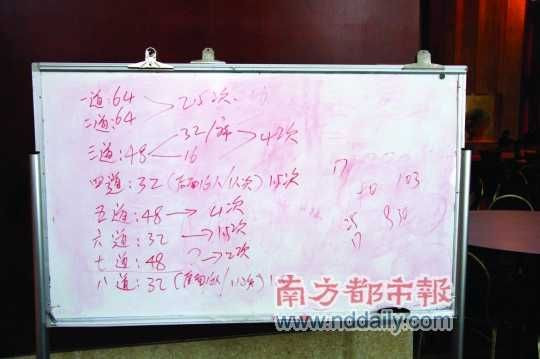 一道:64
二道:64
25次
三道:48
32/
16
4次
四道:32 (后面16人/ 次) 15次
五道:48 → 4次
六道:32 → 15次
七道:48 → 2次
八道:32
17
50 103
25 830
17
南方都市報
www.nddaily.com